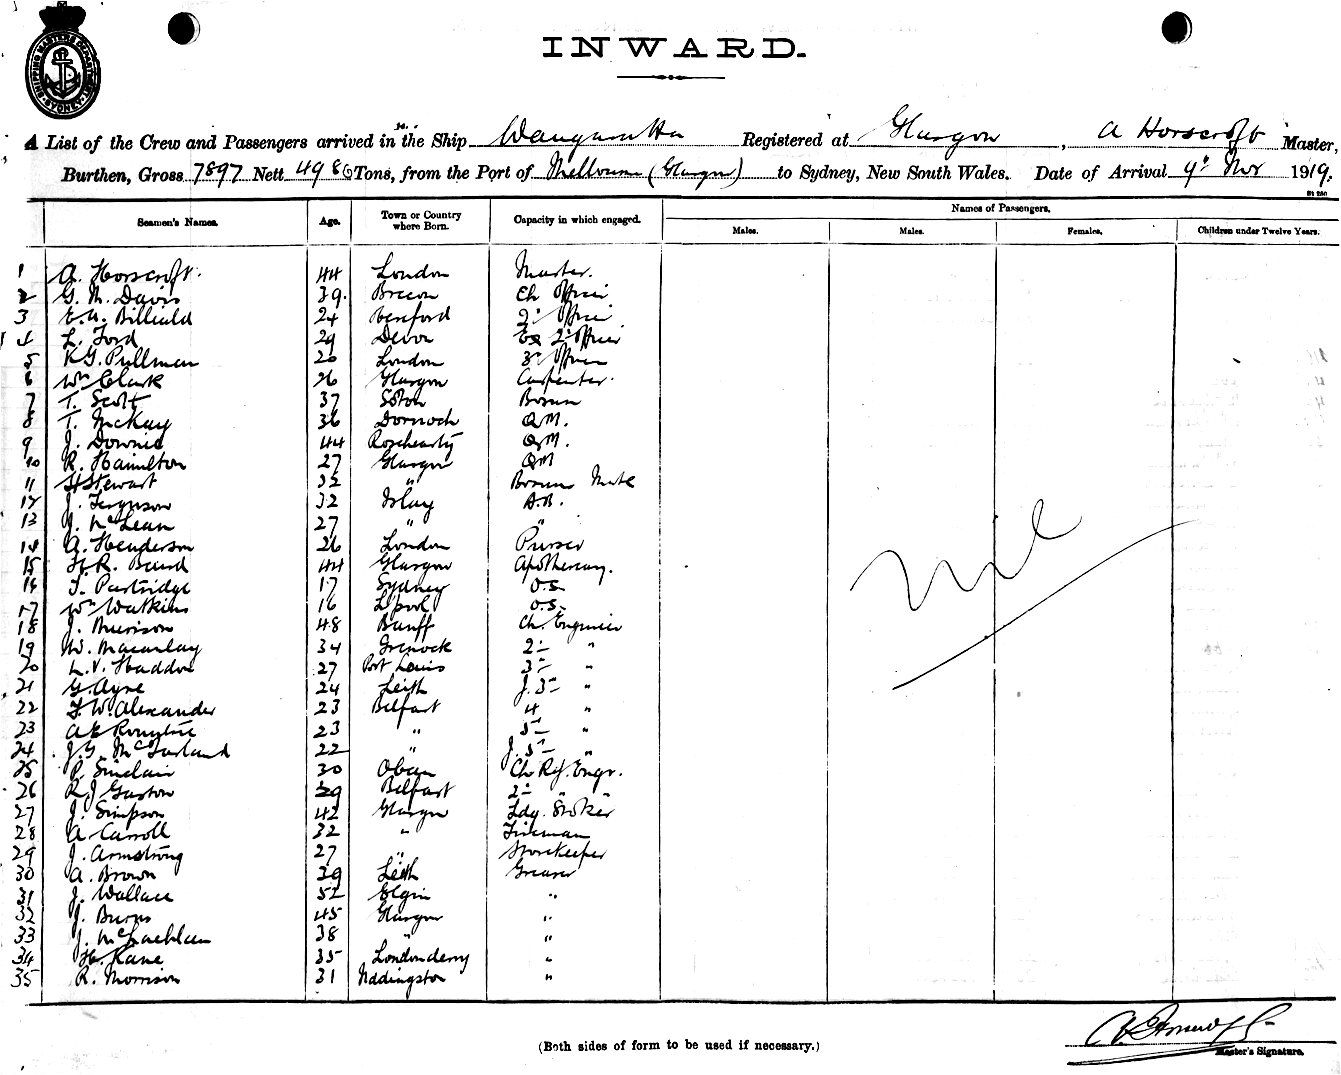 INWARD.
A List of the Crew and Passengers arrived in the Ship Registered at Glasgow, A Horscroft Master,
Burthen, Gross 7897 Nett 4986 Tons, from the Port of Melbourne (Glasgow) to Sydney, New South Wales. Date of Arrival 9th Nov 1919.
Seamen's Names. Age. Town or Country where Born. Capacity in which engaged. Names of Passengers.
Males. Males. Females. Children under Twelve Years.
1 A. Horscroft. 44 London Master.
2 G. M. Davis 39. Brecon Ch Officer
3 E. A. 24 Hereford 2nd Officer
4 L. Ford 29 Devon Ex 2nd Officer
5 K G. Pullman 20 London 3rd Officer
6 Wm Clark 26 Glasgow Carpenter.
7 T. Scott 37 Soton Bosun
8 T. McKay 36 Dornoch Q.M.
9 J. Downie 44 Rosehearty Q.M.
10 R. Hamilton 27 Glasgow QM
11 H Stewart 32 " Bosuns Mate
12 J. Ferguson 32 Islay A.B.
13 J. McLean 27 " "
14 A. Henderson 26 London Purser
15 H. R. Baird 44 Glasgow Apothecary.
16 T. Partridge 17 Sydney O.S.
17 Wm Watkins 16 L'pool O.S.
18 J. Murison 48 Banff Ch. Engineer
19 W. Macaulay 34 Greenock 2nd "
20 L. V. Haddon 27 Port Louis 3rd "
21 G. Ayre 24 Leith J. 3rd "
22 F. W. Alexander 23 Belfast 4 "
23 A E 23 " 5th "
24 J. G. McFarland 22 " J. 5th "
25 P. Sinclair 30 Oban Ch Ref. Engr.
26 R J Gaston 29 Belfast 2nd " "
27 J. Simpson 42 Glasgow Ldg. Stoker
28 A Carroll 32 " Fireman
29 J. Armstrong 27 " Storekeeper
30 A. Brown 39 Leith Greaser
31 J. Wallace 52 Elgin "
32 J. Burns 45 Glasgow "
33 J. McLachlan 38 " "
34 H. Kane 35 Londonderry "
35 R. Morrison 31 Uddingston "
Nil
A. Horscroft
Master's Signature.
(Both sides of form to be used if necessary.)